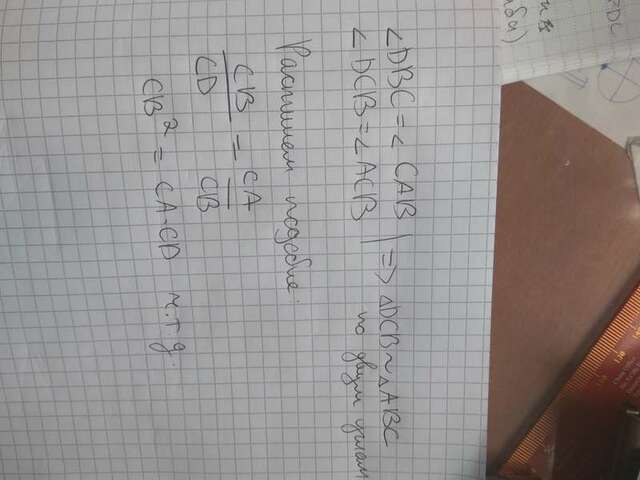 ∠DBC = ∠ CAB | => △DCB ~ △ABC
∠ DCB = ∠ ACB | по двум углам
Распишем подобие:
CB/CD = CA/CB
CB² = CA·CD ч.т.д.